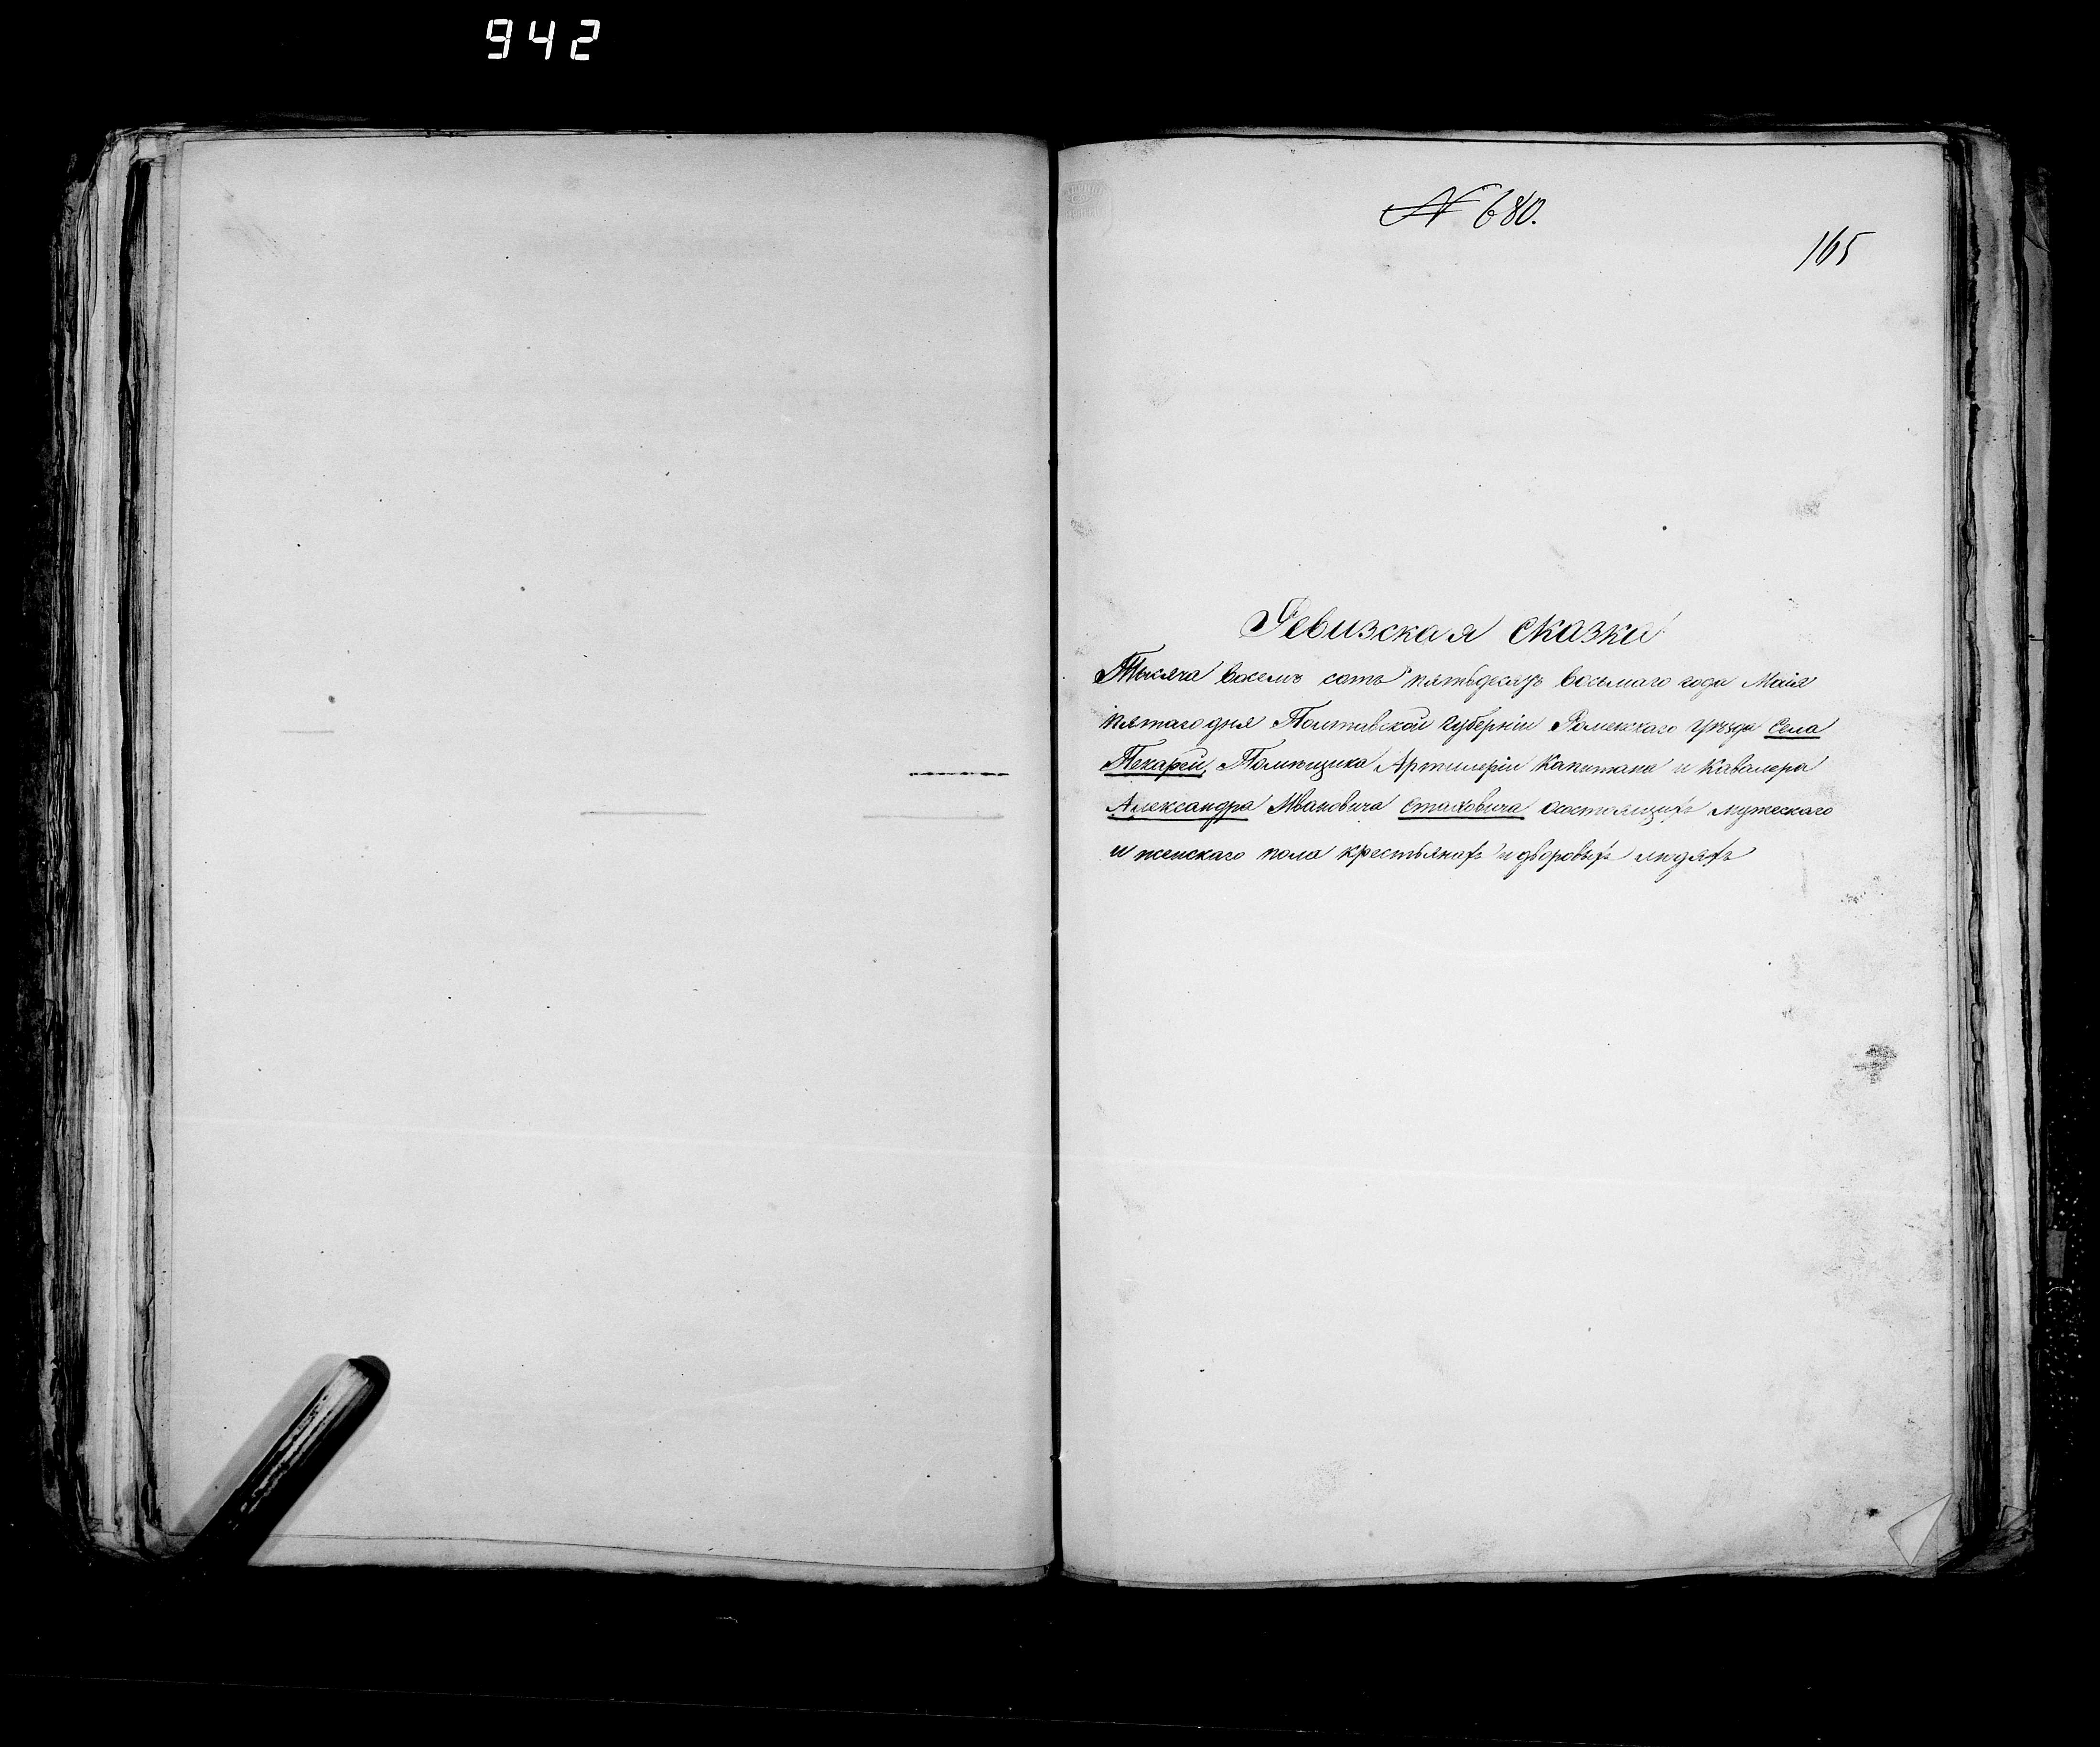 942
№ 680.
165
Ревизская сказка
Тысяча восемь сотъ пятьдесятъ восьмаго года Маія
пятаго дня Полтавской Губерніи Роменскаго уѣзда Села
Пекарей, Помѣщика Артилеріи Капитана и Кавалера
Александра Ивановича Стаховича осостоящихъ мужескаго
и женскаго пола крестьянахъ и дворовыхъ людяхъ